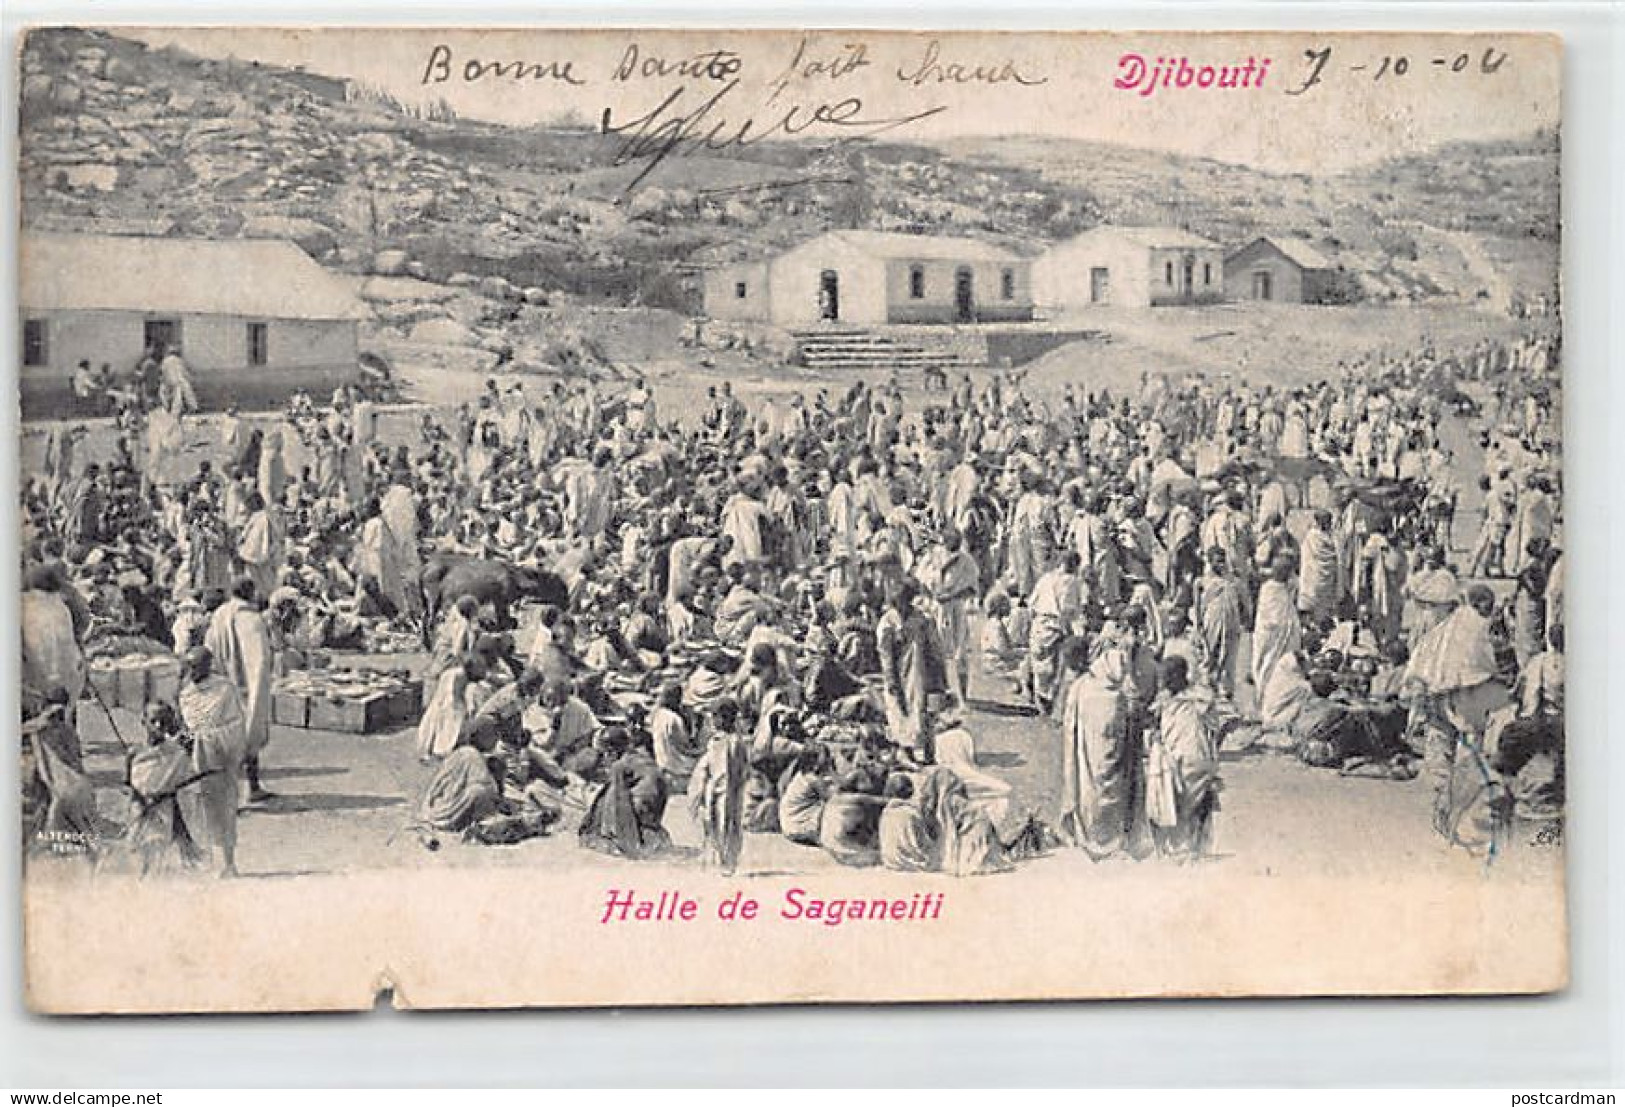 Bonne santé fait chaud
Djibouti 7-10-04
ALTEROCCA
TERNI
Halle de Saganeiti
delcampe.net
postcardman